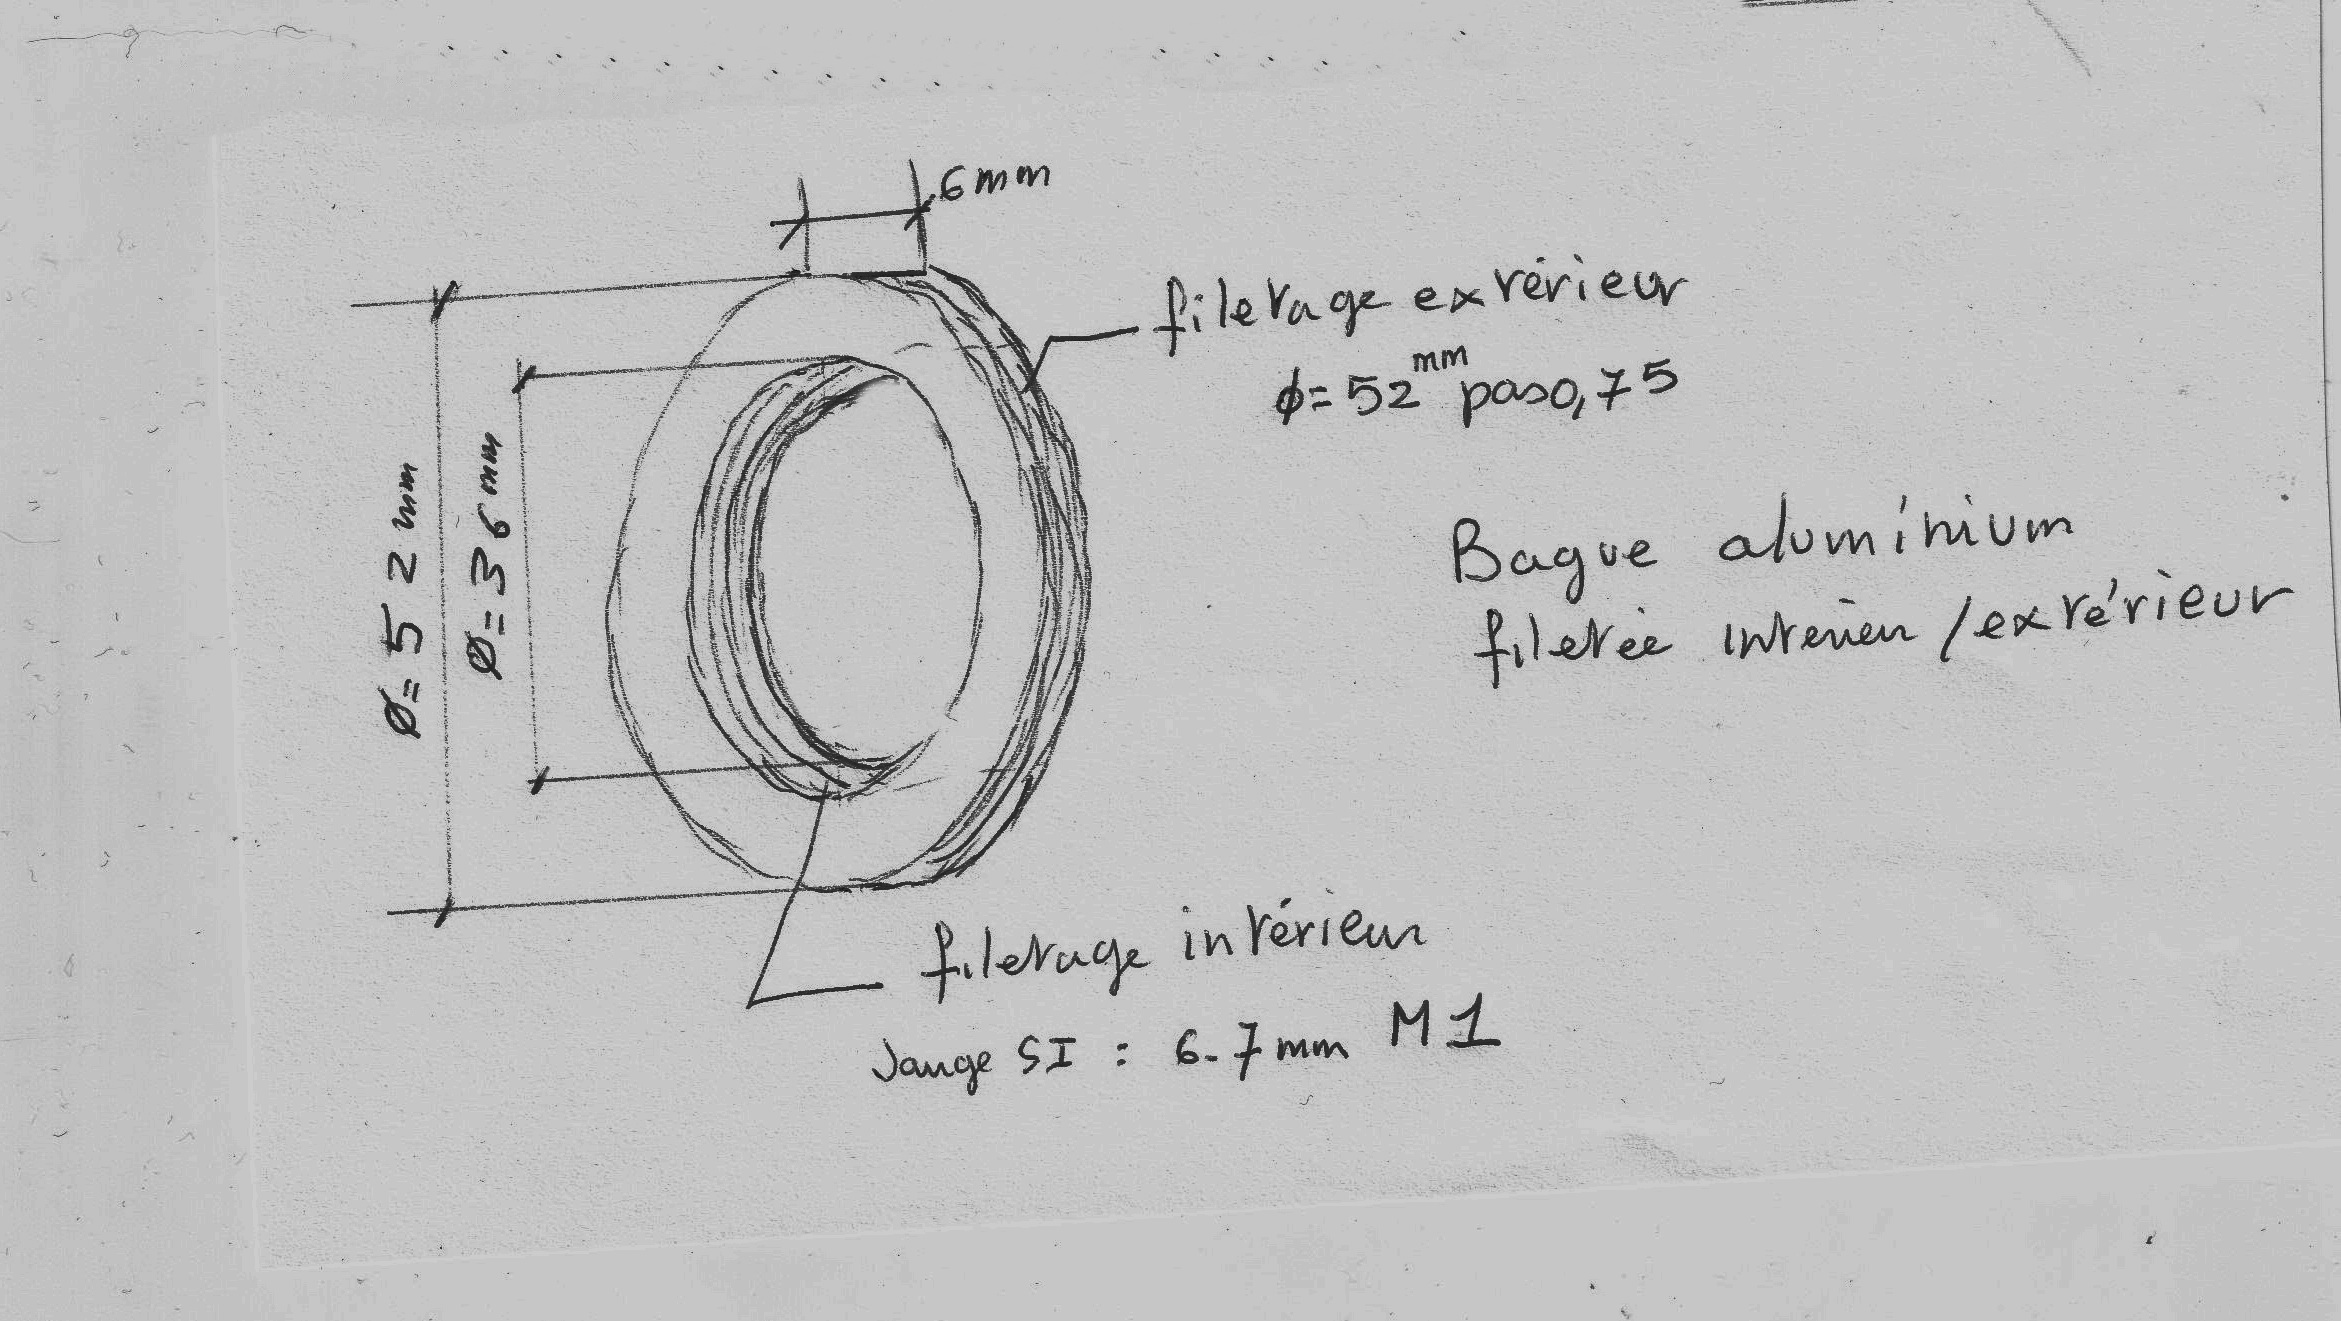 6mm
filetage extérieur
ϕ=52mm pas0,75
Ø=52mm
Ø=36mm
Bague aluminium
filetée intérieur/extérieur
filetage intérieur
Jauge SI : 6-7mm M1